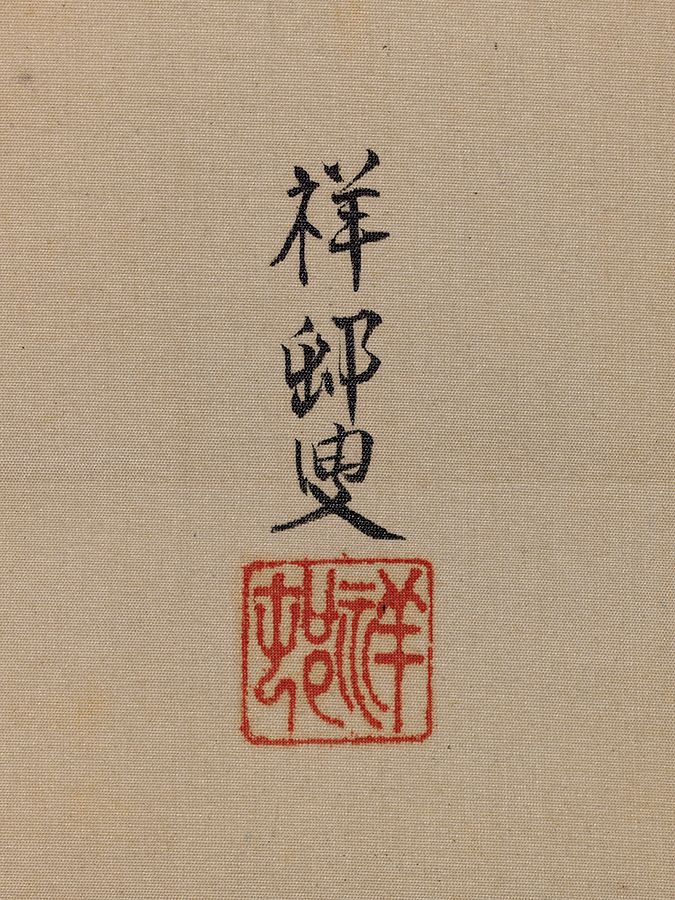 祥邨叟
祥邨